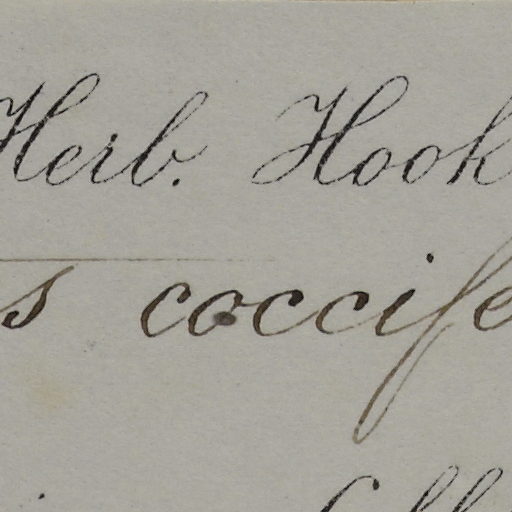 Herb. Hook
s coccife